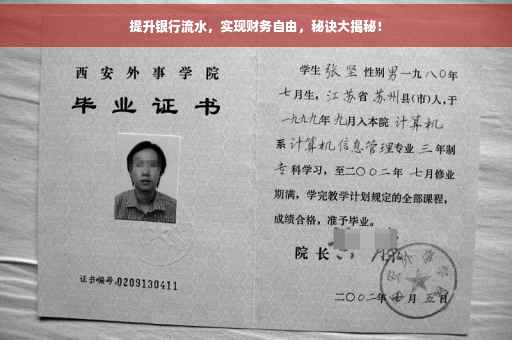 提升银行流水，实现财务自由，秘诀大揭秘！
西安外事学院
毕业证书
证书编号:0209130411
学生 张坚 性别男一九八〇年
七月生，江苏省 苏州县(市)人,于
一九九九年 九月入本院 计算机
系 计算机信息管理专业 三 年制
专 科学习，至二〇〇二年 七月修业
期满，学完教学计划规定的全部课程，
成绩合格，准予毕业。
院长
二〇〇二年 月 五日